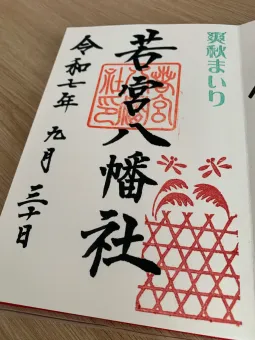 爽秋まいり
若宮八幡社
令和七年 九月 三十日